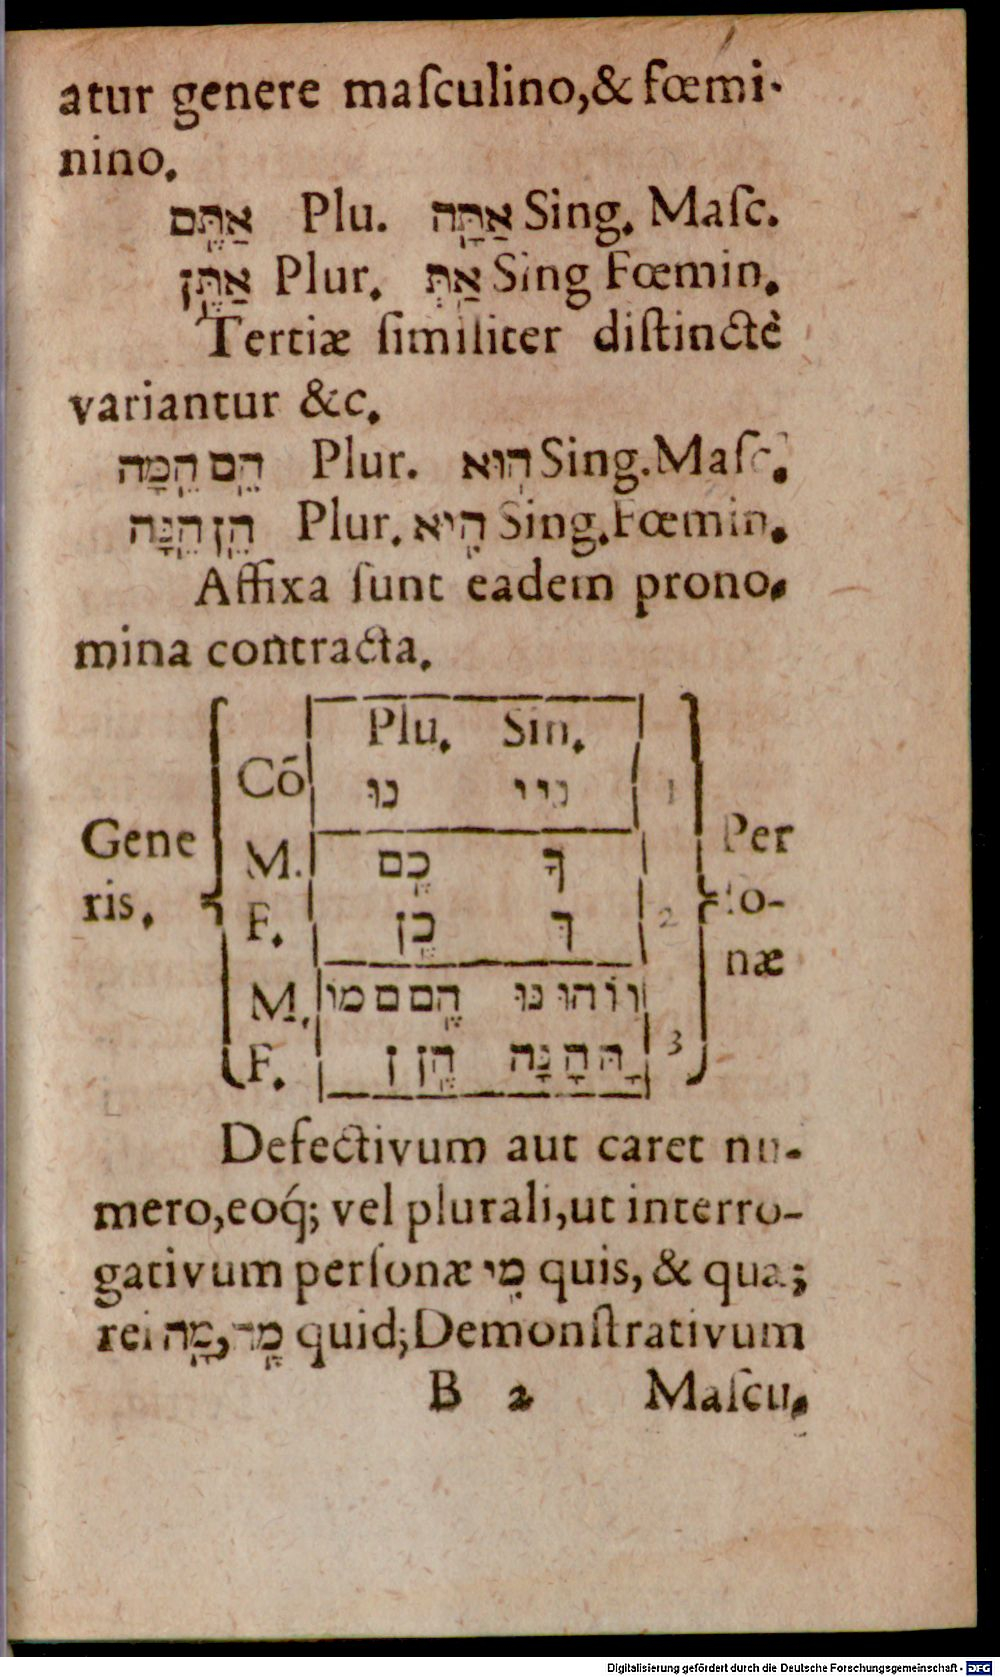 atur genere maſculino,& fœmi-
nino.
אַתֶּם Plu. אַתָּה Sing. Maſc.
אַתֶּן Plur. אַתְּ Sing Fœmin.
Tertiæ ſimiliter diſtinctè
variantur &c.
הֵם הֵמָּה Plur. הוּא Sing. Maſc.
הֵן הֵנָּה Plur. הִיא Sing. Fœmin.
Affixa ſunt eadem prono-
mina contracta.
Plu. Sin.
Cō נוּ ני י 1
Gene M. כֶם ךָ Per
ris. F. כֶן ךְ 2 ſo-
næ
M. הֶם ם מוֹ וֹ הוּ נּוּ
F. הֶן ן הּ הָ נָּה 3
Defectivum aut caret nu-
mero, eoq́; vel plurali, ut interro-
gativum perſonæ מִי quis, & quæ;
rei מָה, מַ־ quid; Demonſtrativum
B 2 Maſcu.
Digitalisierung gefördert durch die Deutsche Forschungsgemeinschaft - DFG